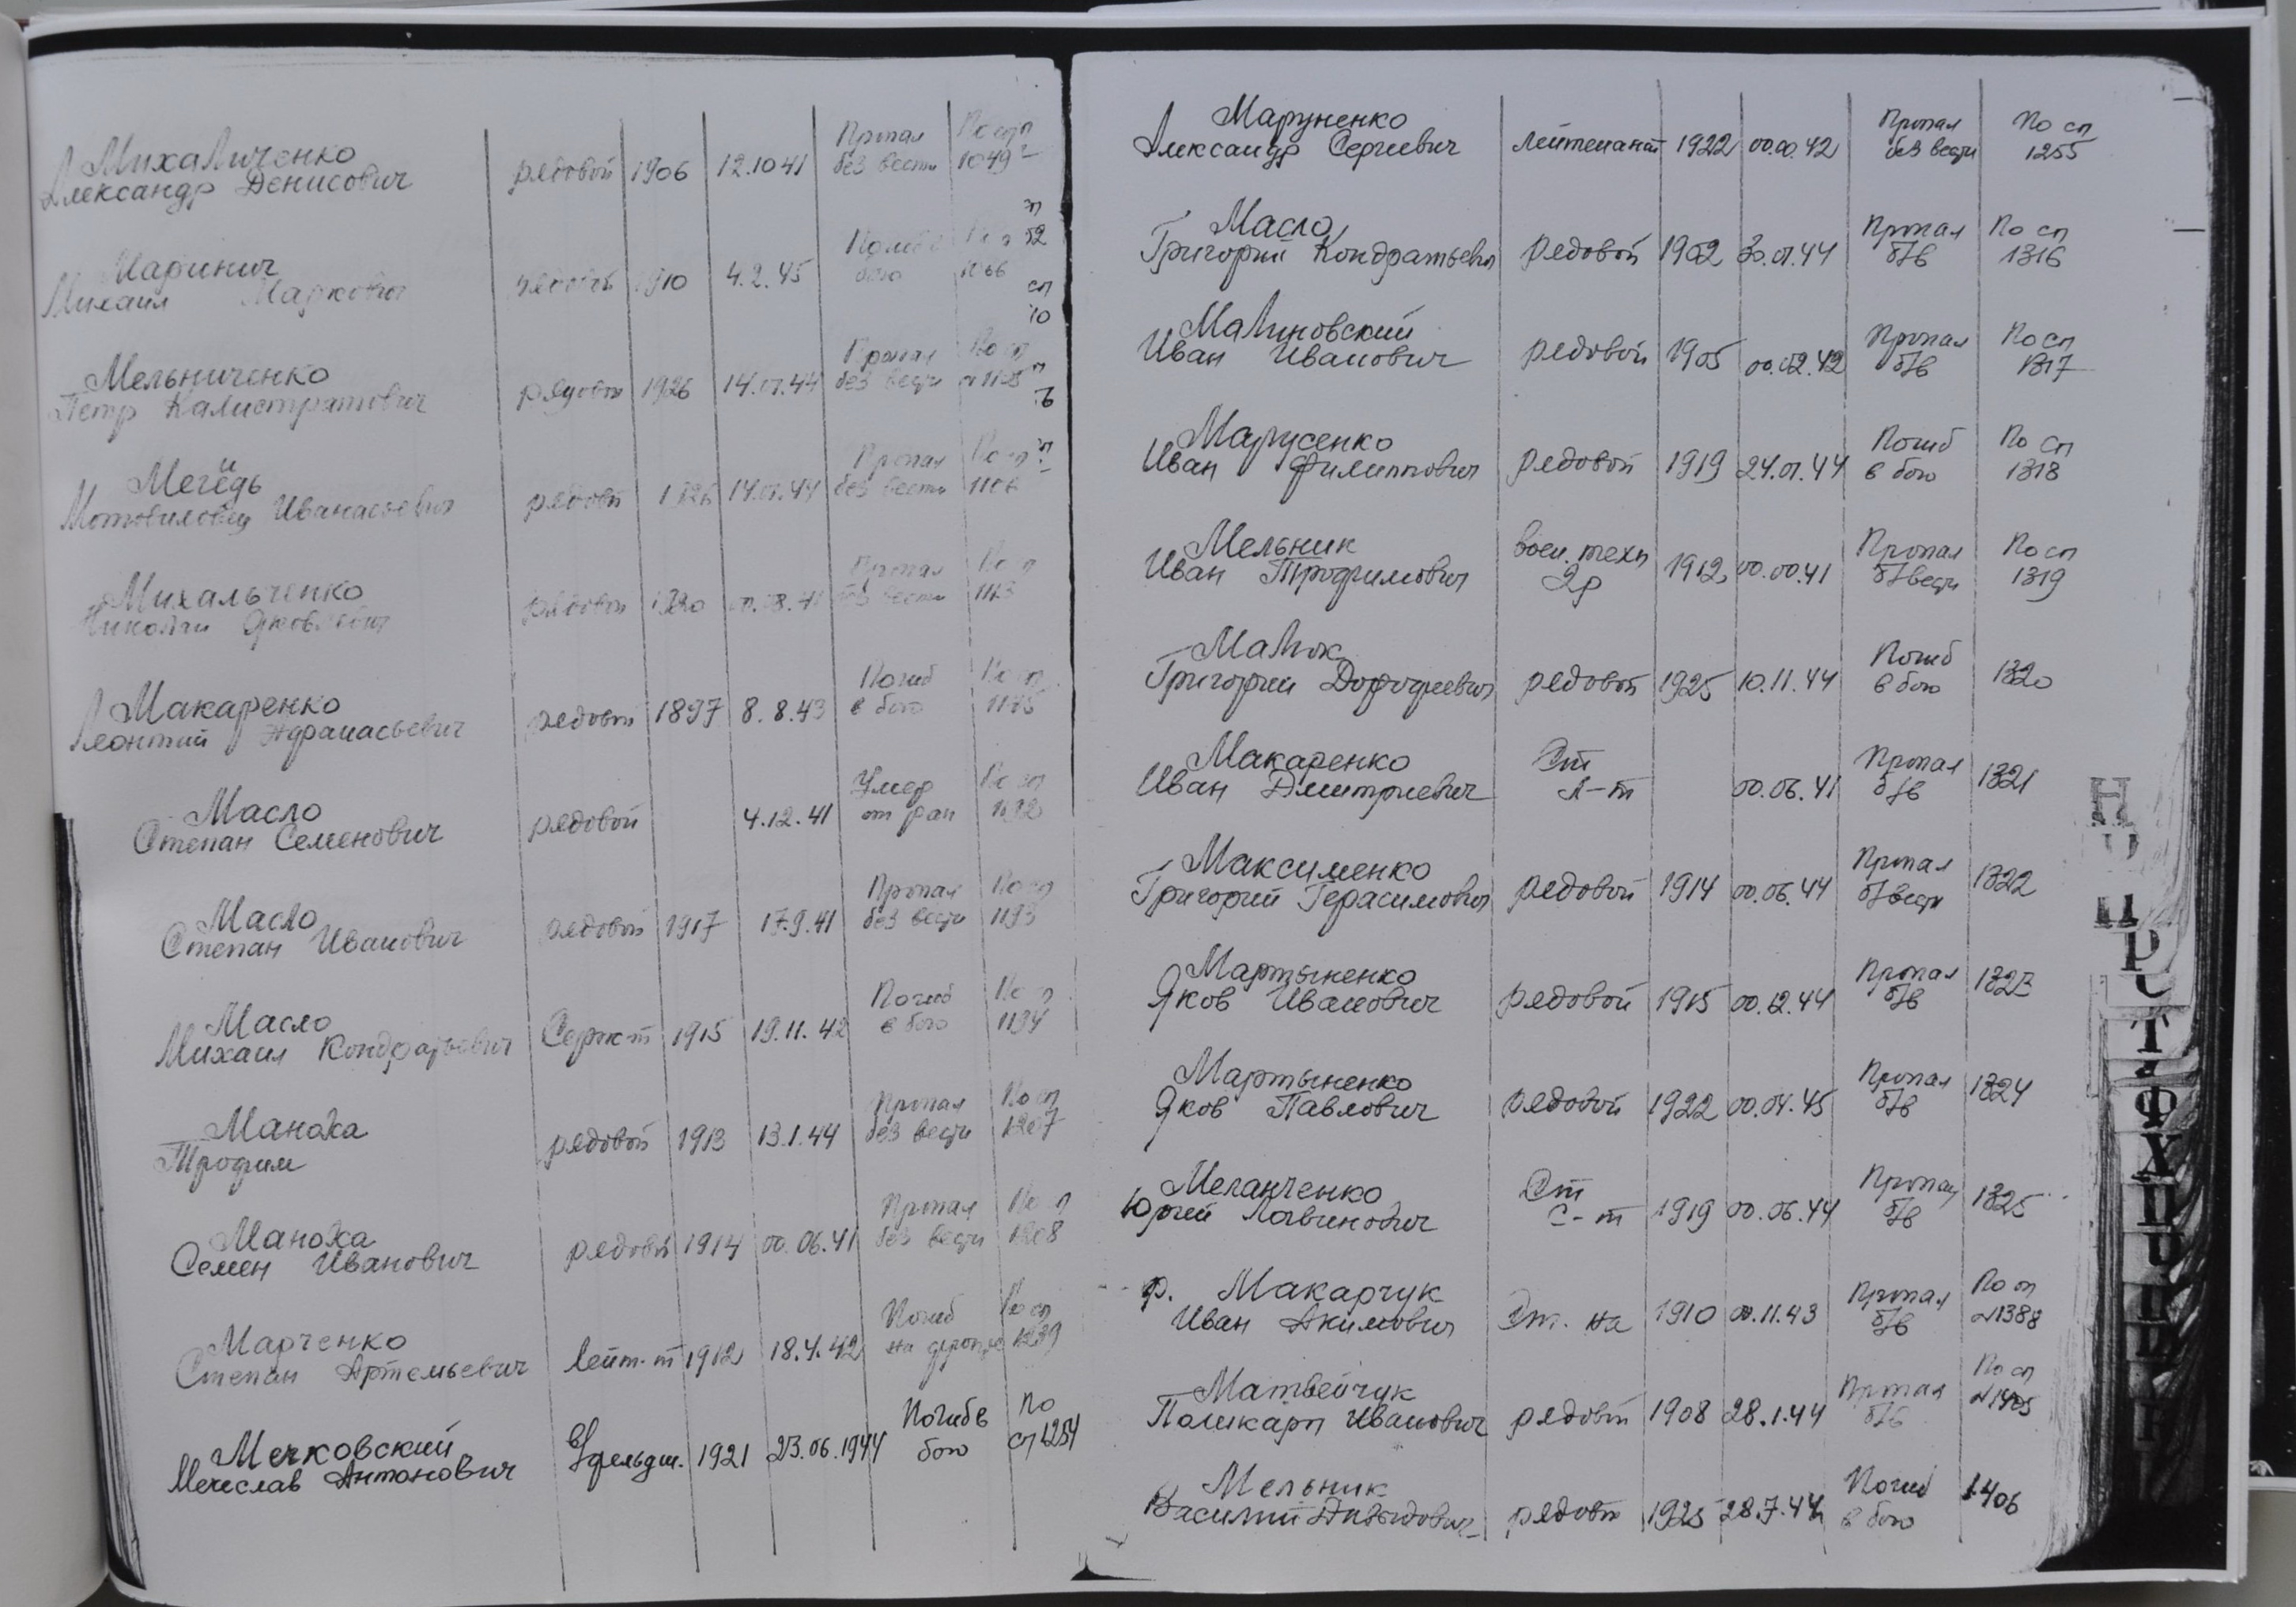 Михаличенко
Александр Денисович рядовой 1906 12.10 41 Пропал без вести По сп 1049
Маринич
Михаил Маркович рядовой 1910 4.2.45 бою 1066
Мельниченко
Петр Калистратович рядовой 1926 14.01.44 Пропал без вести По сп
Мегедь
Иванасьевич рядовой 1926 14.01.44 Пропал без вести 1106
Михальченко
Николай Яковлевич рядовой 1920 00.08.41 Пропал без вести 1113
Макаренко
Леонтий Афанасьевич рядовой 1897 8.8.43 Погиб в бою По сп
Масло
Степан Семенович рядовой 4.12.41 Умер от ран По сп
Масло
Степан Иванович рядовой 1917 17.9.41 Пропал без вести По сп 1193
Масло
Михаил Кондратьевич Серж-т 1915 19.11.42 Погиб в бою 1194
Маноха
Трофим рядовой 1913 13.1.44 Пропал без вести По сп 1207
Маноха
Семен Иванович рядовой 1914 00.06.41 Пропал без вести 1208
Марченко
Степан Артемьевич Лейт-т 1912 18.4.42 Погиб на фронте По сп 1239
Мечковский
Мечеслав Антонович фельдш. 1921 23.06.1944 Погиб в бою По сп 1254
Маруненко
Александр Сергиевич лейтенант 1922 00.00.42 Пропал без вести По сп 1255
Масло
Григорий Кондратьевич рядовой 1902 30.01.44 Пропал б/в По сп 1316
Малиновский
Иван Иванович рядовой 1905 00.02.42 Пропал б/в По сп 1317
Марусенко
Иван Филиппович рядовой 1919 24.01.44 Погиб в бою По сп 1318
Мельник
Иван Трофимович воен. техн 2р 1912 00.00.41 Пропал б/вести По сп 1319
Малюк
Григорий Дорофеевич рядовой 1925 10.11.44 Погиб в бою 1320
Макаренко
Иван Дмитриевич Ст л-т 00.06.41 Пропал б/в 1321
Максименко
Григорий Герасимович рядовой 1914 00.06.44 Пропал б/вести 1322
Мартыненко
Яков Иванович рядовой 1915 00.12.44 Пропал б/в 1323
Мартыненко
Яков Павлович рядовой 1922 00.04.45 Пропал б/в 1324
Меланченко
Юрий Логвинович Ст с-т 1919 00.06.44 Пропал б/в 1325
р. Макарчук
Иван Акимович 1910 00.11.43 Пропал б/в По сп №1388
Матвейчук
Поликарп Иванович рядовой 1908 28.1.44 Пропал б/в По сп №1405
Мельник
Василий Давыдович рядовой 1925 28.7.44 Погиб в бою 1406
Н
О
П
Р
С
Т
Ф
Х